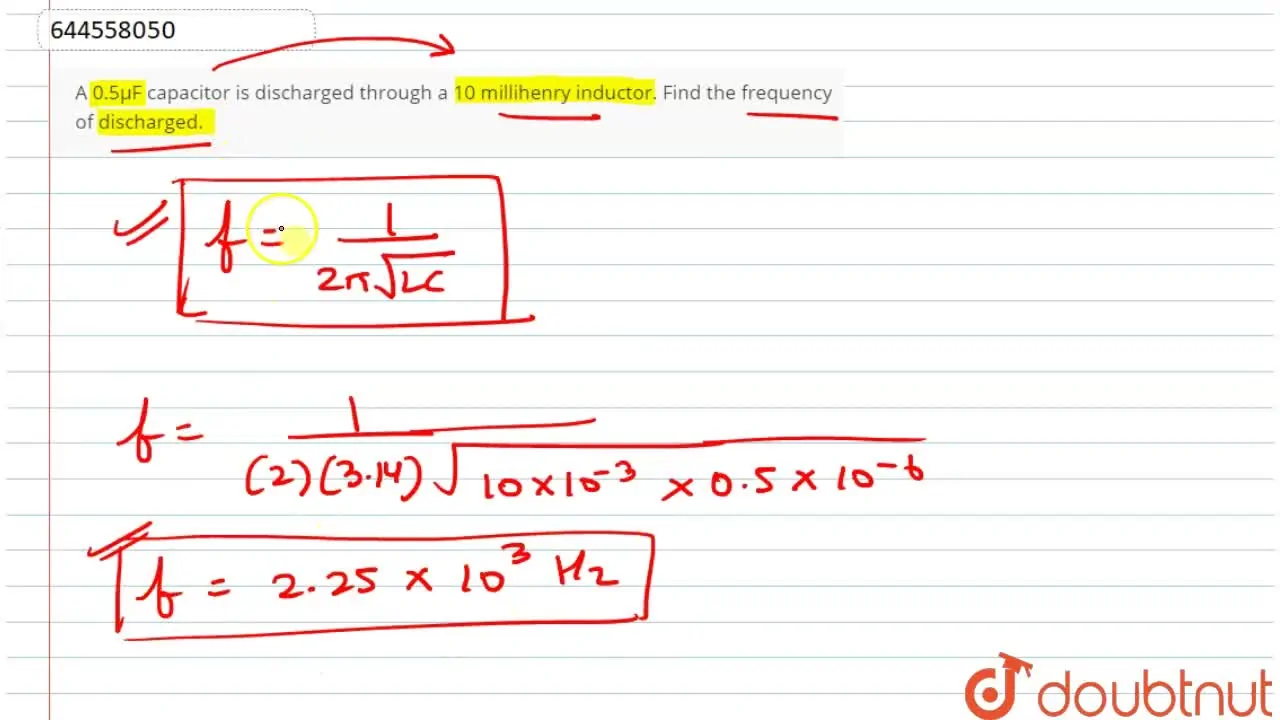 644558050
A 0.5μF capacitor is discharged through a 10 millihenry inductor. Find the frequency
of discharged.
f = 1 / 2π√LC
f = 1 / (2)(3.14)√10×10⁻³ × 0.5 × 10⁻⁶
f = 2.25 × 10³ Hz
doubtnut